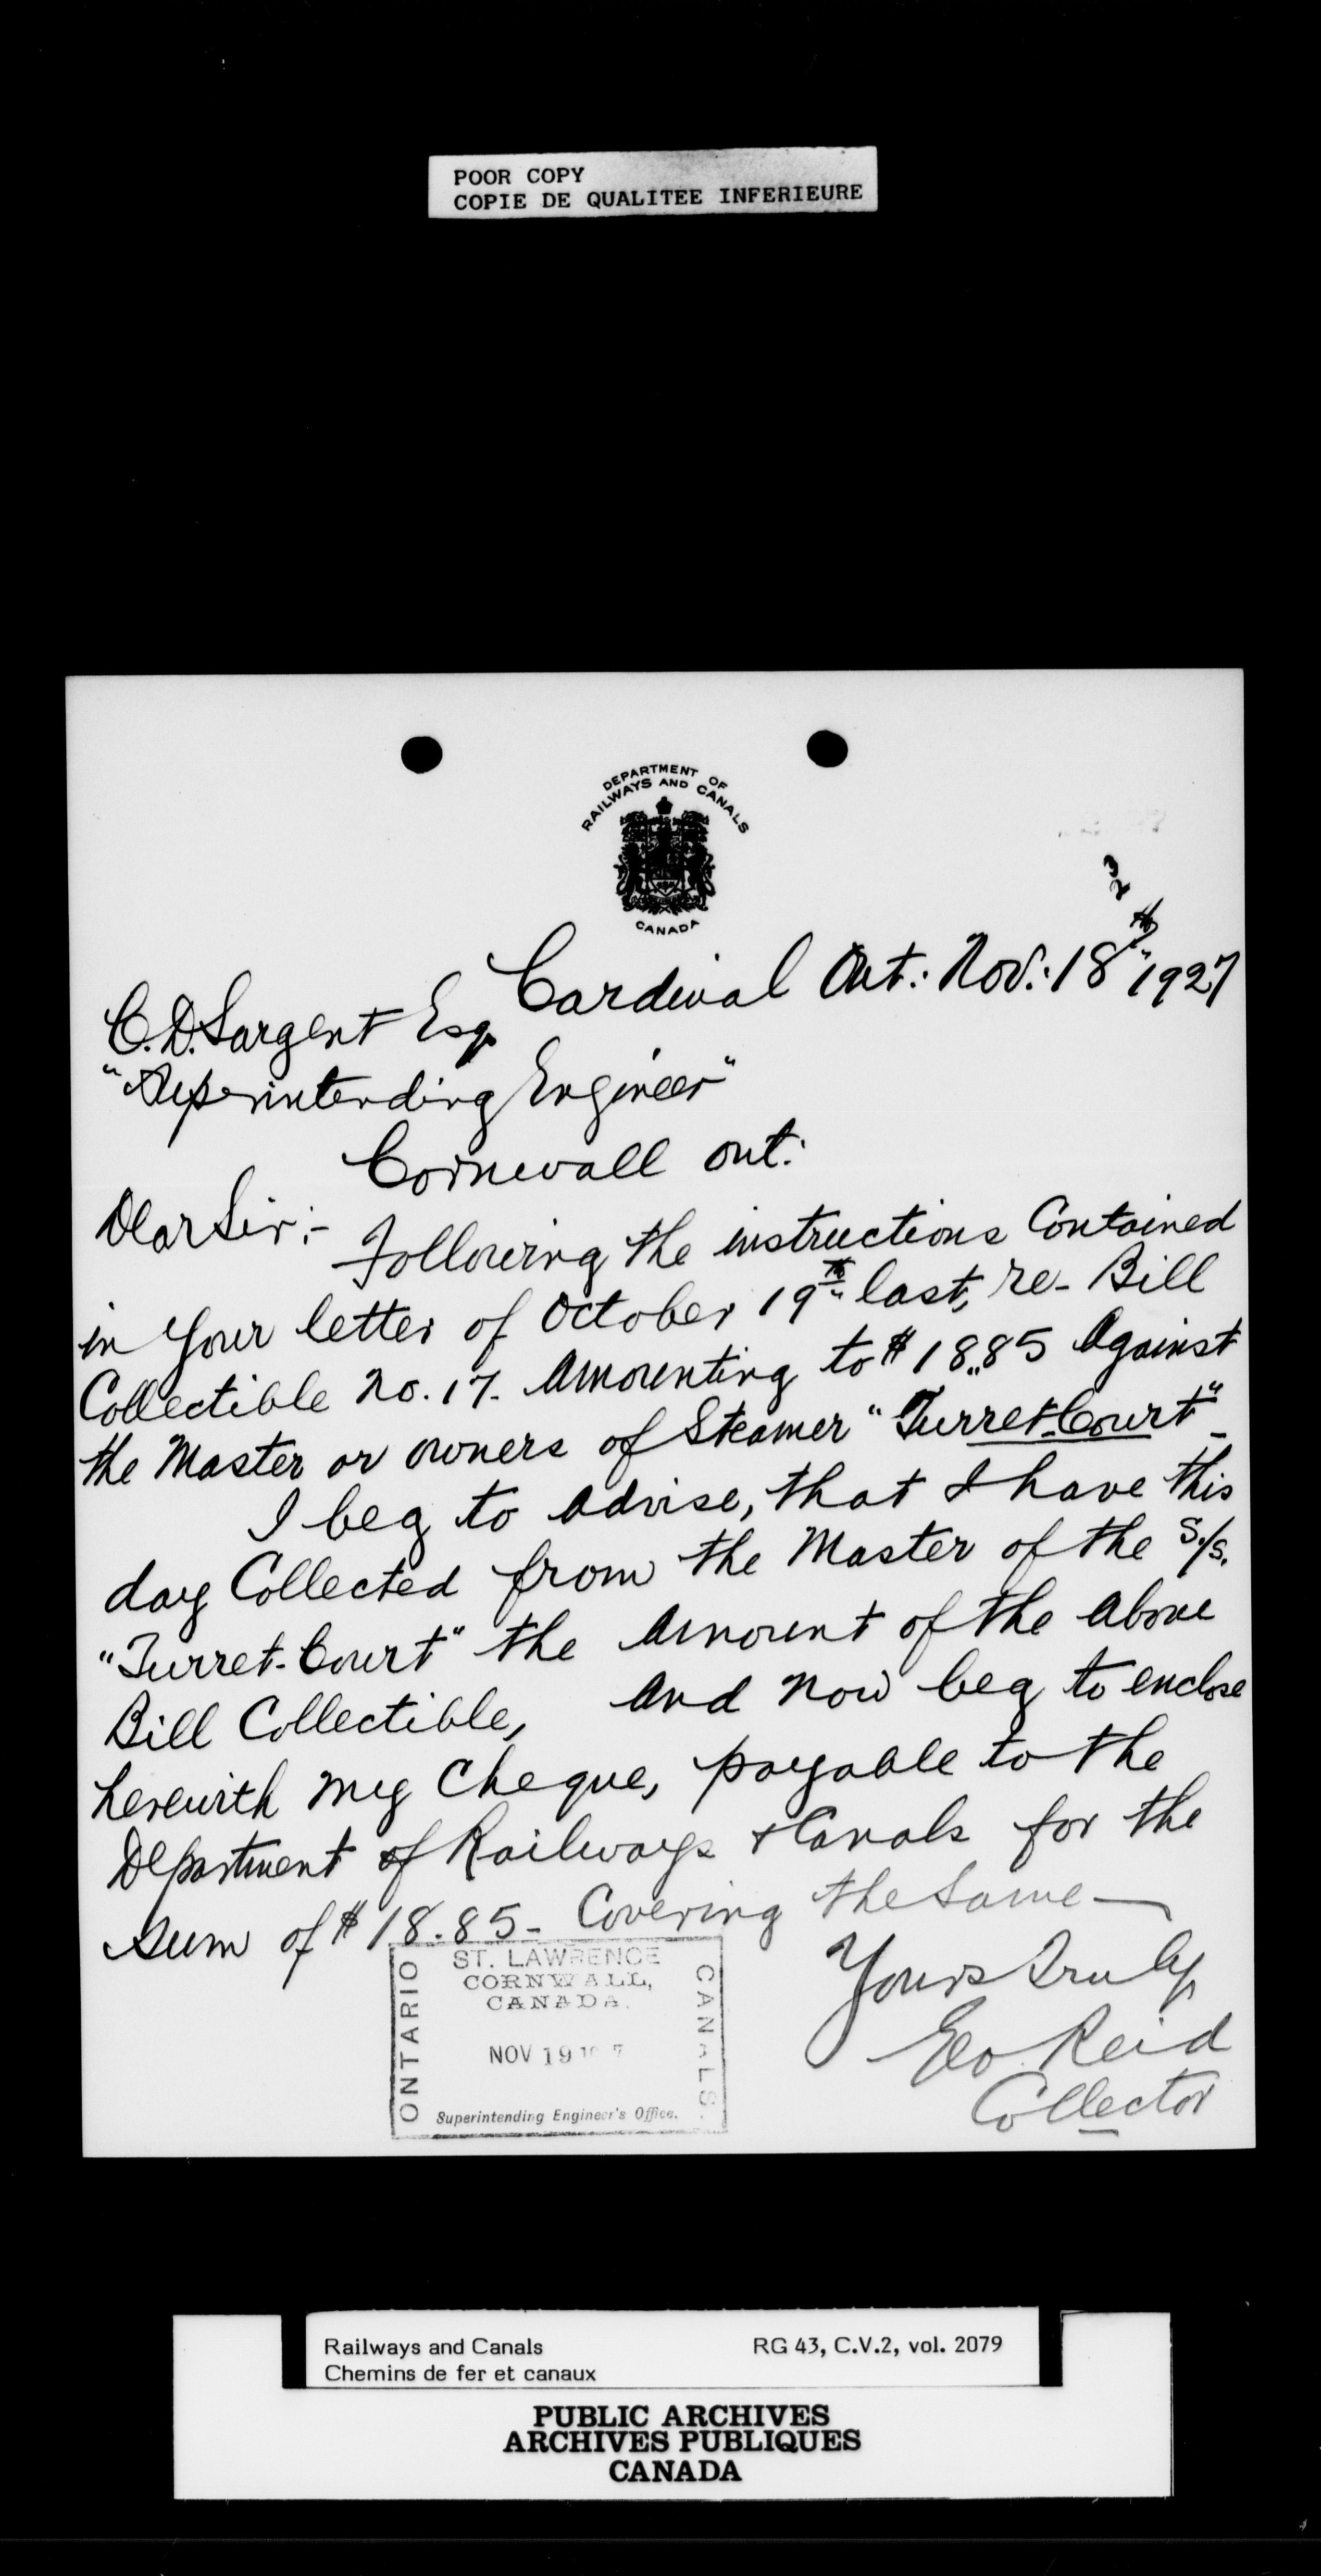 POOR COPY
COPIE DE QUALITEE INFERIEURE
DEPARTMENT OF
RAILWAYS AND CANALS
CANADA
Cardinal Ont: Nov: 18th 1927
C.D. Sargent Esq
"Superintending Engineer"
Cornwall Ont:
Dear Sir:-
Following the instructions Contained
in Your letter of October 19th last, re- Bill
Collectible No. 17. Amounting to $18.85 Against
the Master or owners of Steamer "Turret-Court"-
I beg to Advise, that I have this
day Collected from the Master of the S/s.
"Turret-Court" the Amount of the Above
Bill Collectible, And now beg to enclose
herewith my Cheque, payable to the
Department of Railways & Canals for the
sum of $18.85- Covering the Same—
Yours Truly
Geo Reid
Collector
ST. LAWRENCE
CORNWALL,
CANADA.
ONTARIO
CANALS.
NOV 19 19 7
Superintending Engineer's Office.
Railways and Canals
Chemins de fer et canaux
RG 43, C.V.2, vol. 2079
PUBLIC ARCHIVES
ARCHIVES PUBLIQUES
CANADA